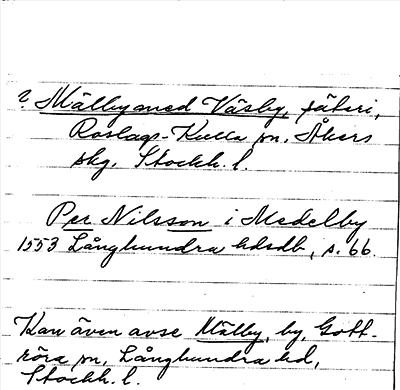 ? Mälby med Väsby, säteri,
Roslags-Kulla sn, Åkers
skg, Stockh. l.
Per Nilsson i Medelby
1553 Långhundra hdsdb, s. 66.
Kan även avse Mälby, by, Gott-
röra sn, Långhundra hd,
Stockh. l.